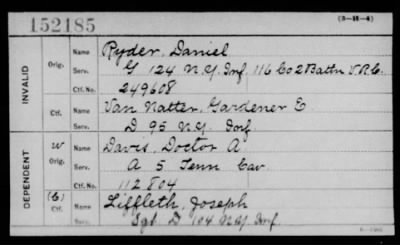 152185
(3-18-4)
INVALID
Orig.
Name Ryder, Daniel
Serv. G 124 N.Y. Inf. 116 Co 2 Battn V.R.C.
Ctf. No. 249608
Ctf.
Name Van Natter, Gardener E
Serv. D 95 N.Y. Inf.
DEPENDENT
W
Orig.
Name Davis, Doctor A
Serv. A 5 Tenn Cav.
Ctf. No. 112804
(C)
Ctf.
Name Liffleth, Joseph
Serv. Sgt. D 104 N.Y. Inf